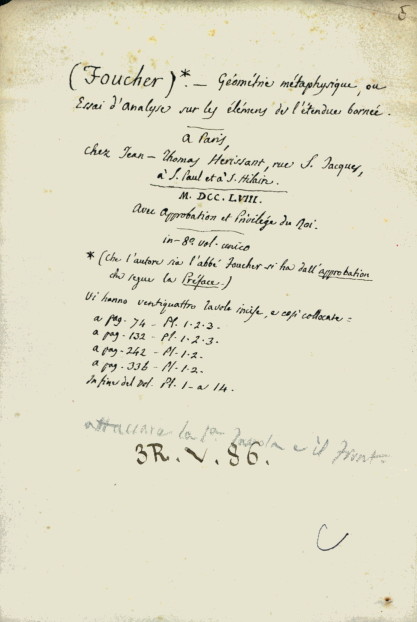 5
(Foucher)*. — Géométrie métaphysique, ou
Essai d'analyse sur les élémens de l'étendue bornée.
A Paris,
Chez Jean-Thomas Herissant, rue S. Jacques,
à S. Paul et à S. Hilaire.
M. DCC. LVIII.
Avec Approbation et Privilége du Roi.
in-8º. vol. unico
* (Che l'autore sia l'abbé Foucher si ha dall'approbation
che segue la Préface.)
Vi hanno ventiquattro tavole incise, e così collocate =
a pag. 74 - Pl. 1. 2. 3.
a pag. 132 - Pl. 1. 2. 3.
a pag. 242 - Pl. 1. 2.
a pag. 336 - Pl. 1. 2.
In fine del Vol. Pl. 1 - a 14.
attaccare la 1ª Tavola e il Front.
3R. V. 86.